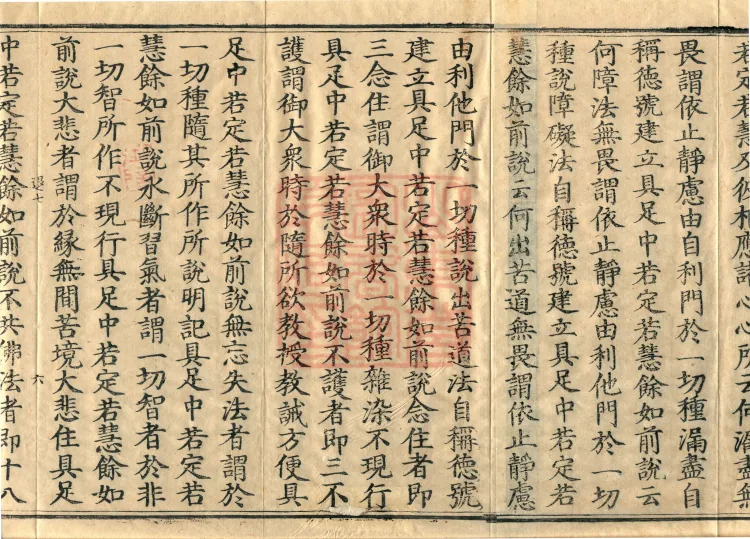 若定若慧及彼相應諸心心所云何漏盡無
畏謂依止靜慮由自利門於一切種漏盡自
稱德號建立具足中若定若慧餘如前說云
何障法無畏謂依止靜慮由利他門於一切
種說障礙法自稱德號建立具足中若定若
慧餘如前說云何出苦道無畏謂依止靜慮
由利他門於一切種說出苦道法自稱德號
建立具足中若定若慧餘如前說念住者即
三念住謂御大衆時於一切種雜染不現行
具足中若定若慧餘如前說不護者即三不
護謂御大衆時於隨所欲教授教誡方便具
足中若定若慧餘如前說無忘失法者謂於
一切種隨其所作所說明記具足中若定若
慧餘如前說永斷習氣者謂一切智者於非
一切智所作不現行具足中若定若慧餘如
前說大悲者謂於緣無間苦境大悲住具足
七 六
中若定若慧餘如前說不共佛法者即十八